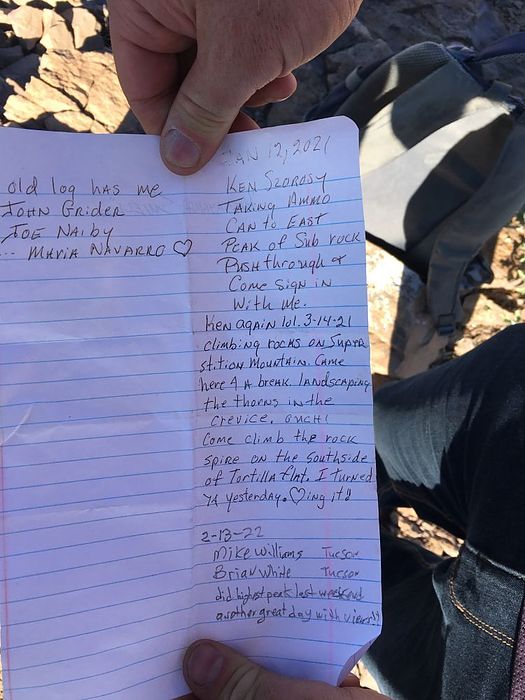 old log has me
JOHN Grider
JOE NAIby
... MARIA NAVARRO ♡
JAN 12, 2021
KEN
TAKING AMMO
CAN to EAST
PEAK of Sub rock
Push through &
Come sign in
With me.
Ken again lol. 3-14-21
climbing rocks on Super
stition Mountain. Came
here 4 A break. landscaping
the thorns in the
crevice. OUCH!
Come climb the rock
spire on the southside
of Tortilla flat. I turned
yesterday. ♡ing it!
2-13-22
Mike Williams Tucson
Brian White Tucson
did highest peak last weekend
another great day with views!!